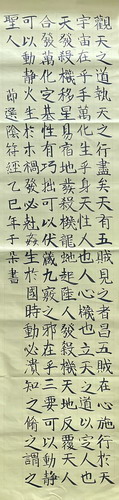 觀天之道執天之行盡矣天有五賊見之者昌五賊在心施行於天
宇宙在乎手萬化生乎身天性人也人心機也立天之道以定人也
天發殺機移星易宿地發殺機龍蛇起陸人發殺機天地反覆天人
合發萬化定基性有巧拙可以伏藏九竅之邪在乎三要可以動靜
可以動靜火生於木禍發必尅姦生於國時動必潰知之脩之謂之
聖人 節選陰符經乙巳年于朵書